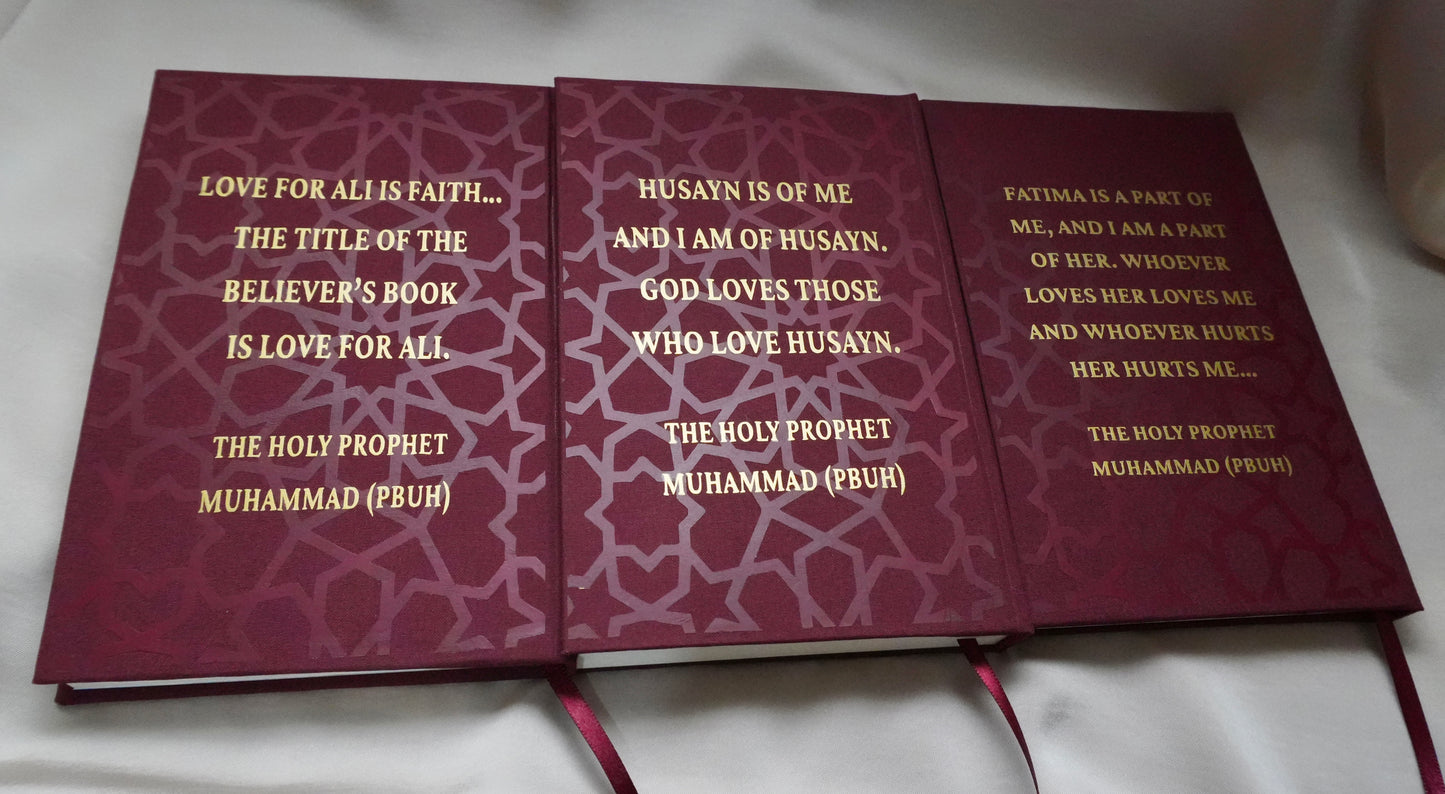 LOVE FOR ALI IS FAITH...
THE TITLE OF THE
BELIEVER'S BOOK
IS LOVE FOR ALI.
THE HOLY PROPHET
MUHAMMAD (PBUH)
HUSAYN IS OF ME
AND I AM OF HUSAYN.
GOD LOVES THOSE
WHO LOVE HUSAYN.
THE HOLY PROPHET
MUHAMMAD (PBUH)
FATIMA IS A PART OF
ME, AND I AM A PART
OF HER. WHOEVER
LOVES HER LOVES ME
AND WHOEVER HURTS
HER HURTS ME...
THE HOLY PROPHET
MUHAMMAD (PBUH)